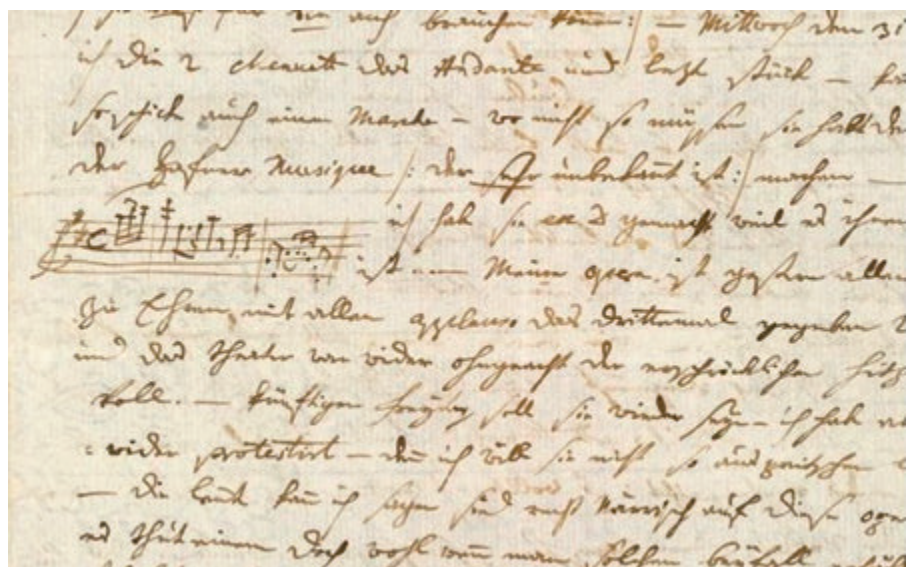 sie auch brauchen können :) — Mittwoch den 31
ich die 2 Menuett das Andante und letzt stück —
so schick auch einen Marche — wo nicht so müssen sie halt den
der Hafner Musique /: der sehr unbekannt ist :/ machen —
ich hab sie ex D gemacht weil es ihnen
ist. — Meine opera ist gestern allen
zu Ehren mit allen applauso das drittemal gegeben
und das theater war wider ohngeacht der erschrecklichen hitze
voll. — künftigen freytag soll sie wieder seyn — ich hab
wider protestirt — denn ich will sie nicht so auspeitschen
— die leute kann ich sagen sind recht Närrisch auf diese oper
es thut einem doch wohl wenn man solchen beyfall